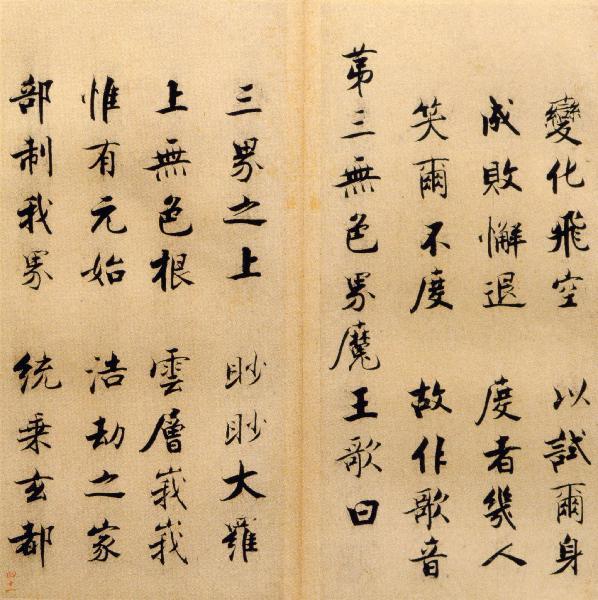 變化飛空 以試爾身
成敗懈退 度者幾人
笑爾不度 故作歌音
苐三無色界魔王歌曰
三界之上 眇眇大羅
上無色根 雲層峩峩
惟有元始 浩劫之家
部制我界 統乗玄都
四十一